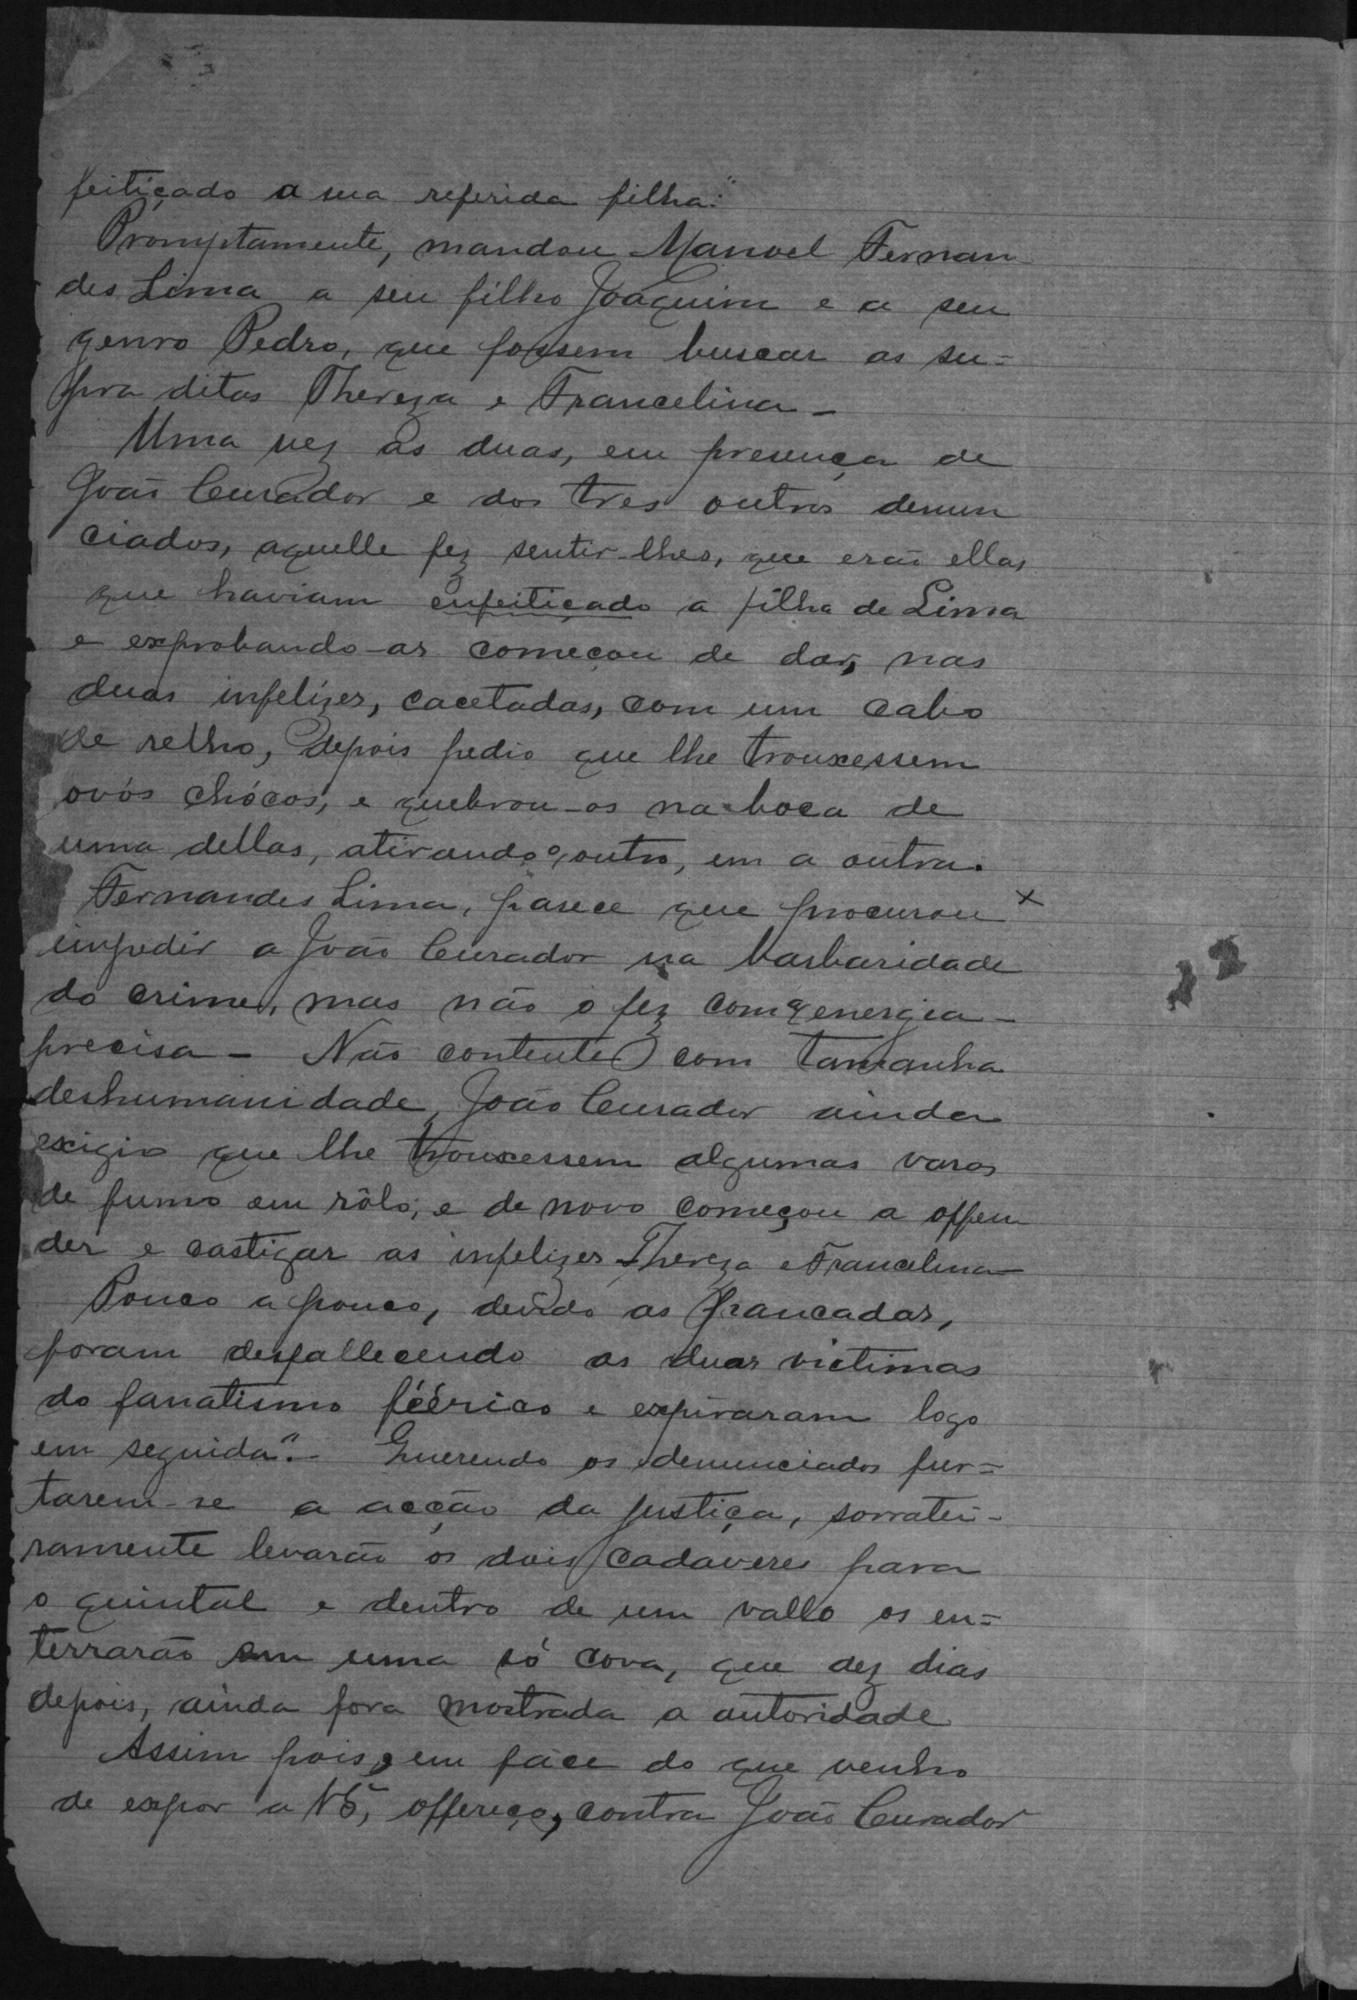 feitiçado a sua referida filha."
Promptamente, mandou Manoel Fernan
des Lima a seu filho Joaquim e a seu
genro Pedro, que fossem buscar as su=
pra ditas Thereza e Francelina –
Uma vez as duas, em presença de
João Curador e dos tres outros denun
ciados, aquelle fez sentir-lhes, que erão ellas
que haviam enfeitiçado a filha de Lima
e exprobando-as começou de dar, nas
duas infelizes, cacetadas, com um cabo
de relho, depois pedio que lhe trouxessem
ovós chócos, e quebrou-os na boca de
uma dellas, atirando o outro, em a outra.
Fernandes Lima, parece que procurou x
impedir a João Curador na barbaridade
do crime, mas não o fez com a energia –
precisa – Não contente com tamanha
deshumanidade, João Curador ainda
exigio que lhe trouxessem algumas varas
de fumo em rôlo, e de novo começou a offen
der e castigar as infelizes Thereza e Francelina –
Pouco a pouco, devido as pancadas,
foram desfallecendo as duas victimas
do fanatismo féérico e expiraram logo
em seguida". – Querendo os denunciados fur=
tarem-se a acção da justiça, sorratei-
ramente levarão os dois cadaveres para
o quintal e dentro de um vallo os en=
terrarão em uma só cova, que dez dias
depois, ainda fora mostrada a autoridade
Assim pois, em face do que venho
de expor a VS, offereço, contra João Curador